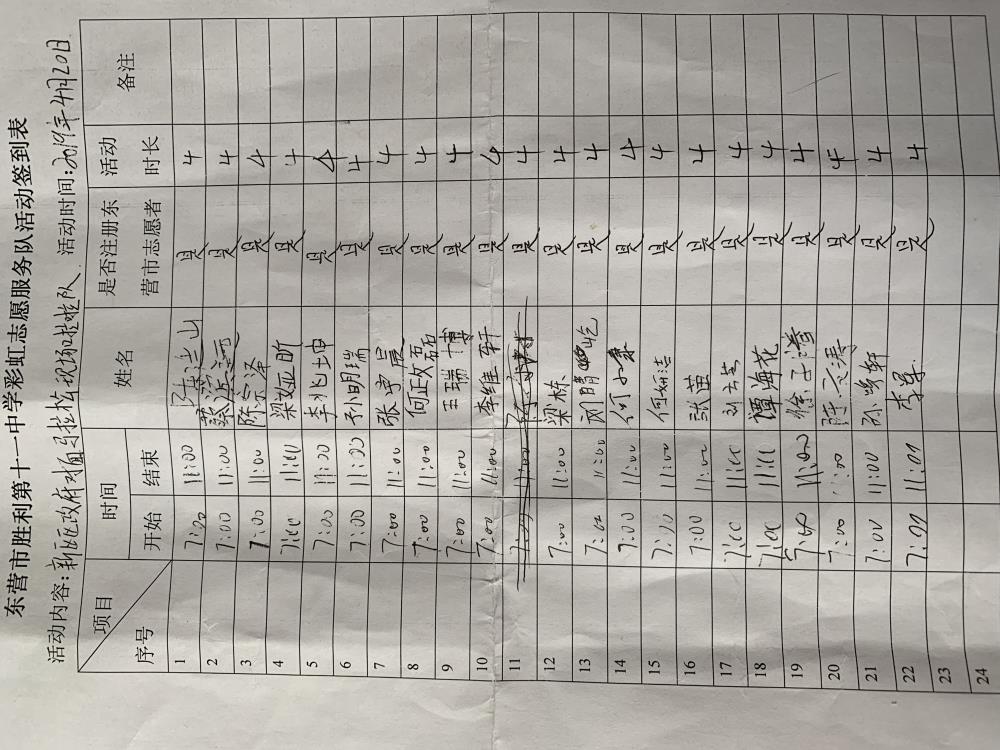 东营市胜利第十一中学彩虹志愿服务队活动签到表
活动内容: 新区政府对面马拉松现场啦啦队 活动时间: 2019年4月20日
项目 时间 姓名 是否注册东营市志愿者 活动时长 备注
序号 开始 结束
1 7:00 11:00 是 4
2 7:00 11:00 是 4
3 7:00 11:00 陈宗泽 是 4
4 7:00 11:00 梁娅昕 是 4
5 7:00 11:00 李兆坤 是 4
6 7:00 11:00 孙明瑞 是 4
7 7:00 11:00 张宇晨 是 4
8 7:00 11:00 何政磊 是 4
9 7:00 11:00 王瑞博 是 4
10 7:00 11:00 李维轩 是 4
11 7:00 11:00 是 4
12 7:00 11:00 梁栋 是 4
13 7:00 11:00 是 4
14 7:00 11:00 是 4
15 7:00 11:00 是 4
16 7:00 11:00 张苗 是 4
17 7:00 11:00 是 4
18 7:00 11:00 谭海花 是 4
19 7:00 11:00 徐子潜 是 4
20 7:00 11:00 是 4
21 7:00 11:00 是 4
22 7:00 11:00 是 4
23
24